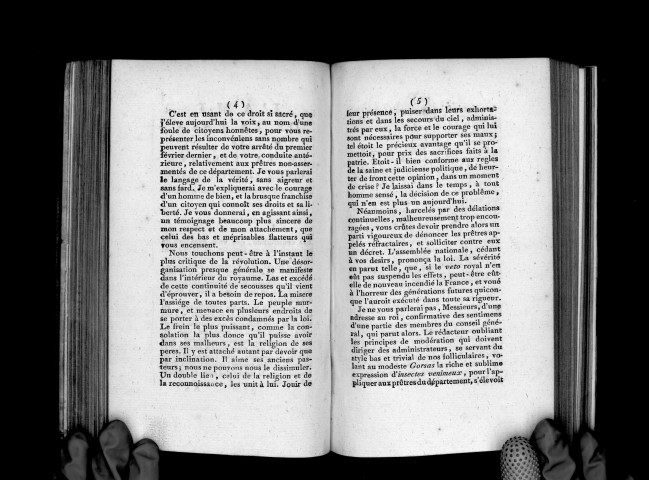 (4)
C'est en usant de ce droit si sacré, que
j'éleve aujourd'hui la voix, au nom d'une
foule de citoyens honnêtes, pour vous re-
présenter les inconvéniens sans nombre qui
peuvent résulter de votre arrêté du premier
février dernier, et de votre conduite anté-
rieure, relativement aux prêtres non-asser-
mentés de ce département. Je vous parlerai
le langage de la vérité, sans aigreur et
sans fard. Je m'expliquerai avec le courage
d'un homme de bien, et la brusque franchise
d'un citoyen qui connoît ses droits et sa li-
berté. Je vous donnerai, en agissant ainsi,
un témoignage beaucoup plus sincere de
mon respect et de mon attachement, que
celui des bas et méprisables flatteurs qui
vous encensent.
Nous touchons peut-être à l'instant le
plus critique de la révolution. Une désor-
ganisation presque générale se manifeste
dans l'intérieur du royaume. Las et excédé
de cette continuité de secousses qu'il vient
d'éprouver, il a besoin de repos. La misere
l'assiége de toutes parts. Le peuple mur-
mure, et menace en plusieurs endroits de
se porter à des excès condamnés par la loi.
Le frein le plus puissant, comme la con-
solation la plus douce qu'il puisse avoir
dans ses malheurs, est la religion de ses
peres. Il y est attaché autant par devoir que
par inclination. Il aime ses anciens pas-
teurs; nous ne pouvons nous le dissimuler.
Un double lien, celui de la religion et de
la reconnoissance, les unit à lui. Jouir de
(5)
leur présence, puiser dans leurs exhorta-
tions et dans les secours du ciel, adminis-
trés par eux, la force et le courage qui lui
sont nécessaires pour supporter ses maux;
tel étoit le précieux avantage qu'il se pro-
mettoit, pour prix des sacrifices faits à la
patrie. Etoit-il bien conforme aux regles
de la saine et judicieuse politique, de heur-
ter de front cette opinion, dans un moment
de crise? Je laissai dans le temps, à tout
homme sensé, la décision de ce problême,
qui n'en est plus un aujourd'hui.
Néanmoins, harcelés par des délations
continuelles, malheureusement trop encou-
ragées, vous crûtes devoir prendre alors un
parti vigoureux de dénoncer les prêtres ap-
pelés réfractaires, et solliciter contre eux
un décret. L'assemblée nationale, cédant
à vos desirs, prononça la loi. La sévérité
en parut telle, que, si le veto royal n'en
eût pas suspendu les effets, peut-être eût-
elle de nouveau incendié la France, et voué
à l'horreur des générations futures quicon-
que l'auroit exécuté dans toute sa rigueur.
Je ne vous parlerai pas, Messieurs, d'une
adresse au roi, confirmative des sentimens
d'une partie des membres du conseil géné-
ral, qui parut alors. Le rédacteur oubliant
les principes de modération qui doivent
diriger des administrateurs, se servant du
style bas et trivial de nos folliculaires, vo-
lant au modeste Gorsas la riche et sublime
expression d'insectes venimeux, pour l'ap-
pliquer aux prêtres du département, s'élevoit